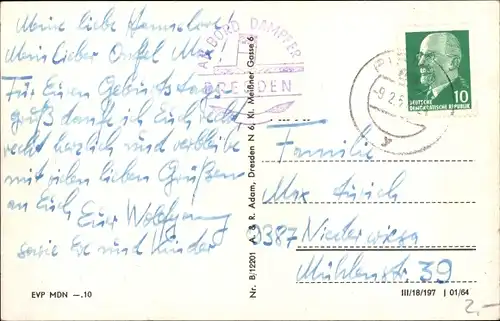 Meine liebe Hannelore!
Mein lieber Onkel Max!
Für Euren Geburtstags-
gruß danke ich Euch recht
recht herzlich und verbleibe
mit vielen lieben Grüßen
an Euch Euer Wolfgang
sowie Eve und Kinder
EVP MDN —.10
AN BORD DAMPFER
DRESDEN
Nr. B/12201 A. & R. Adam, Dresden N 6, Kl. Meißner Gasse 6
DEUTSCHE
DEMOKRATISCHE REPUBLIK
10
Familie
Max
9387 Niederwiesa
Mühlenstr. 39
III/18/197 | 01/64
2,-